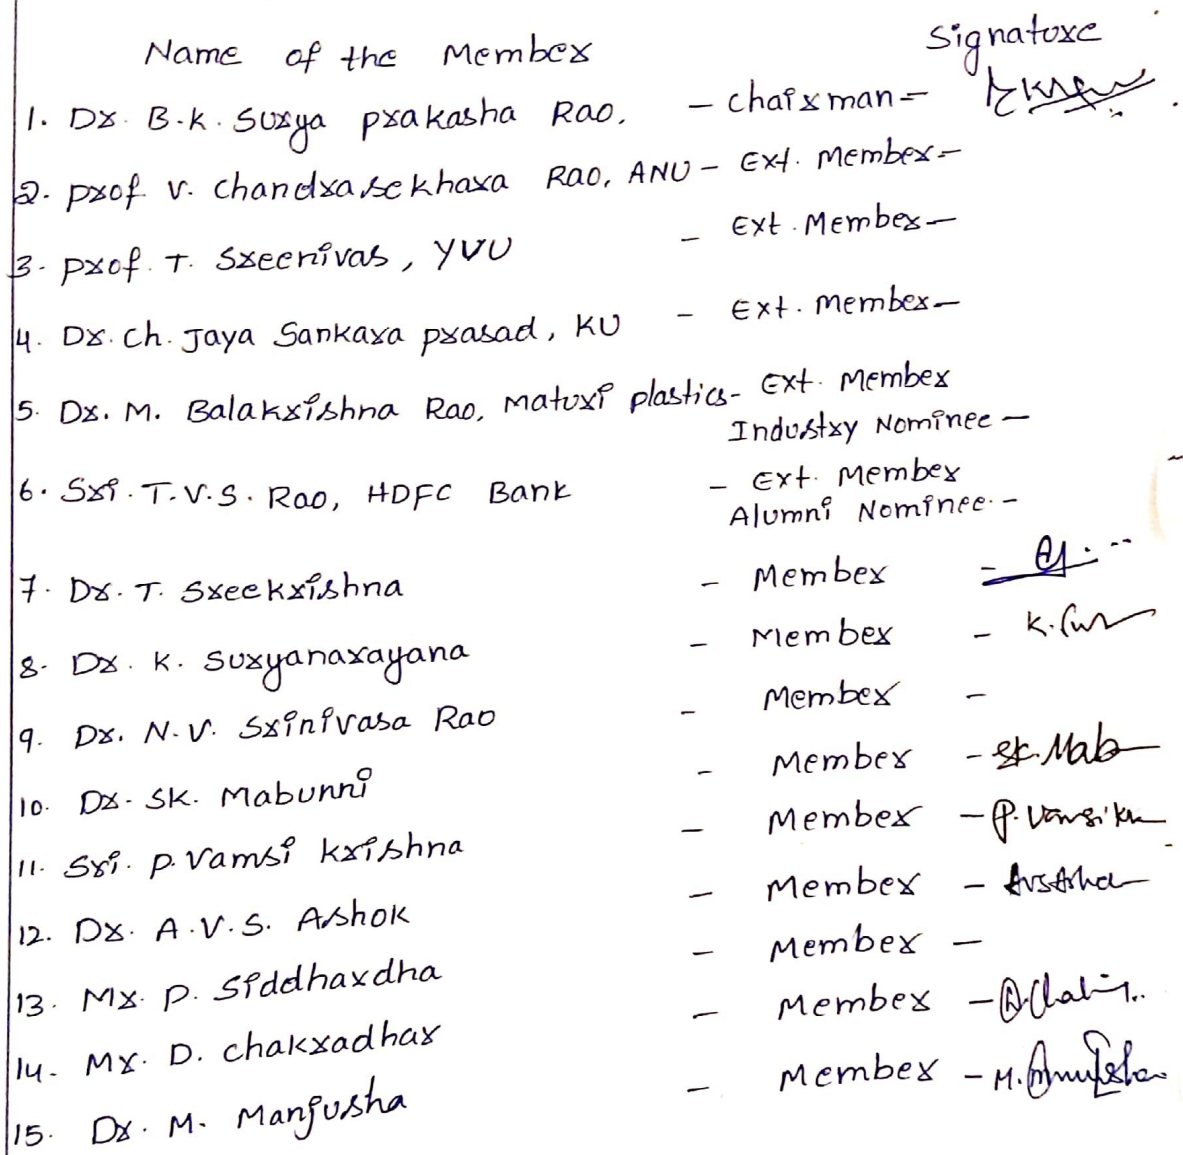 Name of the Member Signature
1. Dr. B.K. Surya prakasha Rao, - chairman -
2. prof V. chandrasekhara Rao, ANU - Ext. Member -
3. prof. T. Sreenivas, YVU - Ext. Member -
4. Dr. Ch. Jaya Sankara prasad, KU - Ext. Member -
5. Dr. M. Balakrishna Rao, Maturi plastics - Ext. Member
Industry Nominee -
6. Sri. T.V.S. Rao, HDFC Bank - Ext. Member
Alumni Nominee. -
7. Dr. T. Sreekrishna - Member -
8. Dr. K. Suryanarayana - Member - K.
9. Dr. N.V. Srinivasa Rao - Member -
10. Dr. SK. Mabunni - Member - SK. Mab
11. Sri. P. Vamsi krishna - Member - P. Vamsi kr
12. Dr. A.V.S. Ashok - Member - AVSAsho
13. Mr. P. Siddhardha - Member -
14. Mr. D. chakradhar - Member - D.
15. Dr. M. Manjusha - Member - M.